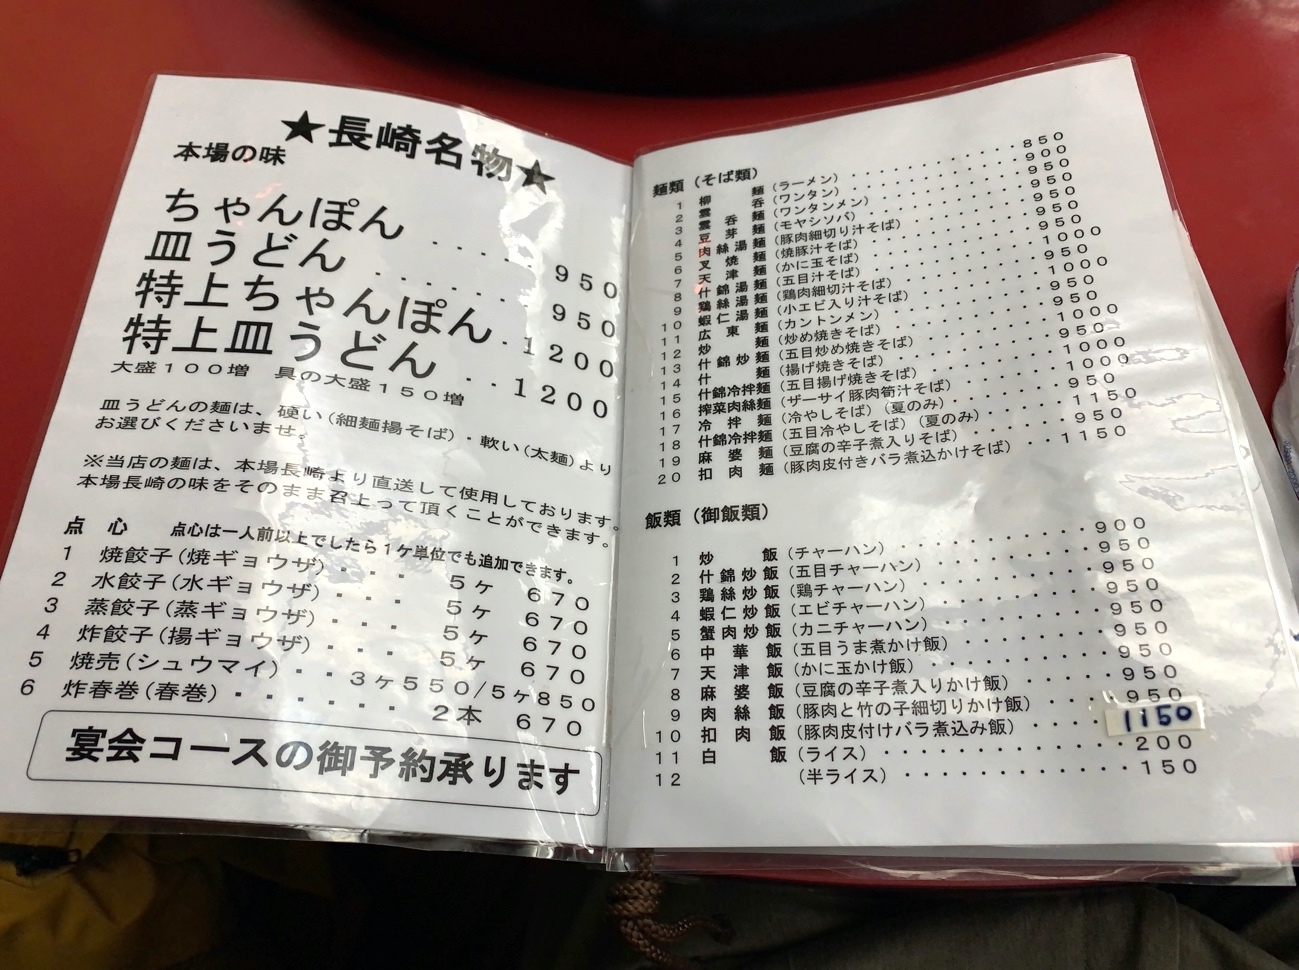 ★長崎名物★
本場の味
ちゃんぽん ‥‥‥950
皿うどん ‥‥‥‥950
特上ちゃんぽん‥1200
特上皿うどん‥‥1200
大盛100増　具の大盛150増
皿うどんの麺は、硬い(細麺揚そば)・軟い(太麺)より
お選びくださいませ。
※当店の麺は、本場長崎より直送して使用しております。
本場長崎の味をそのまま召上って頂くことができます。
点　心　　点心は一人前以上でしたら1ケ単位でも追加できます。
1　焼餃子(焼ギョウザ)・・・　5ヶ　670
2　水餃子(水ギョウザ)・・・　5ヶ　670
3　蒸餃子(蒸ギョウザ)・・・　5ヶ　670
4　炸餃子(揚ギョウザ)・・・　5ヶ　670
5　焼売(シュウマイ)・・3ヶ550/5ヶ850
6　炸春巻(春巻)・・・・・・　2本　670
宴会コースの御予約承ります
麺類（そば類）
1　柳麺（ラーメン）・・・850
2　雲呑（ワンタン）・・・900
3　雲呑麺（ワンタンメン）・・・950
4　豆芽麺（モヤシソバ）・・・950
5　肉絲湯麺（豚肉細切り汁そば）・・・950
6　叉焼麺（焼豚汁そば）・・・950
7　天津麺（かに玉そば）・・・950
8　什錦湯麺（五目汁そば）・・・1000
9　鶏絲湯麺（鶏肉細切汁そば）・・・950
10　蝦仁湯麺（小エビ入り汁そば）・・・1000
11　広東麺（カントンメン）・・・
12　炒麺（炒め焼きそば）・・・950
13　什錦炒麺（五目炒め焼きそば）・・・1000
14　什麺（揚げ焼きそば）・・・950
15　什錦冷拌麺（五目揚げ焼きそば）・・・1000
16　搾菜肉絲麺（ザーサイ豚肉筍汁そば）・・・1000
17　冷拌麺（冷やしそば）（夏のみ）・・・950
18　什錦冷拌麺（五目冷やしそば）（夏のみ）・・・1150
19　麻婆麺（豆腐の辛子煮入りそば）・・・950
20　扣肉麺（豚肉皮付きバラ煮込かけそば）・・・1150
飯類（御飯類）
1　炒飯（チャーハン）・・・900
2　什錦炒飯（五目チャーハン）・・・950
3　鶏絲炒飯（鶏チャーハン）・・・950
4　蝦仁炒飯（エビチャーハン）・・・950
5　蟹肉炒飯（カニチャーハン）・・・950
6　中華飯（五目うま煮かけ飯）・・・950
7　天津飯（かに玉かけ飯）・・・950
8　麻婆飯（豆腐の辛子煮入りかけ飯）・・・950
9　肉絲飯（豚肉と竹の子細切りかけ飯）・・・950
10　扣肉飯（豚肉皮付けバラ煮込み飯）・・・1150
11　白飯（ライス）・・・200
12　（半ライス）・・・150